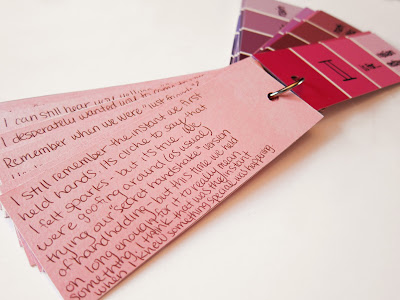 I can still hear
I desperately wanted
Remember when we were "just friends"?
I still remember the instant we first
held hands. It's cliche to say that
I felt "sparks" but it's true. We
were goofing around (as usual)
trying our "secret handshake" version
of handholding but this time we held
on long enough for it to really mean
something. I think that was the instant
when I knew something special was happening
II